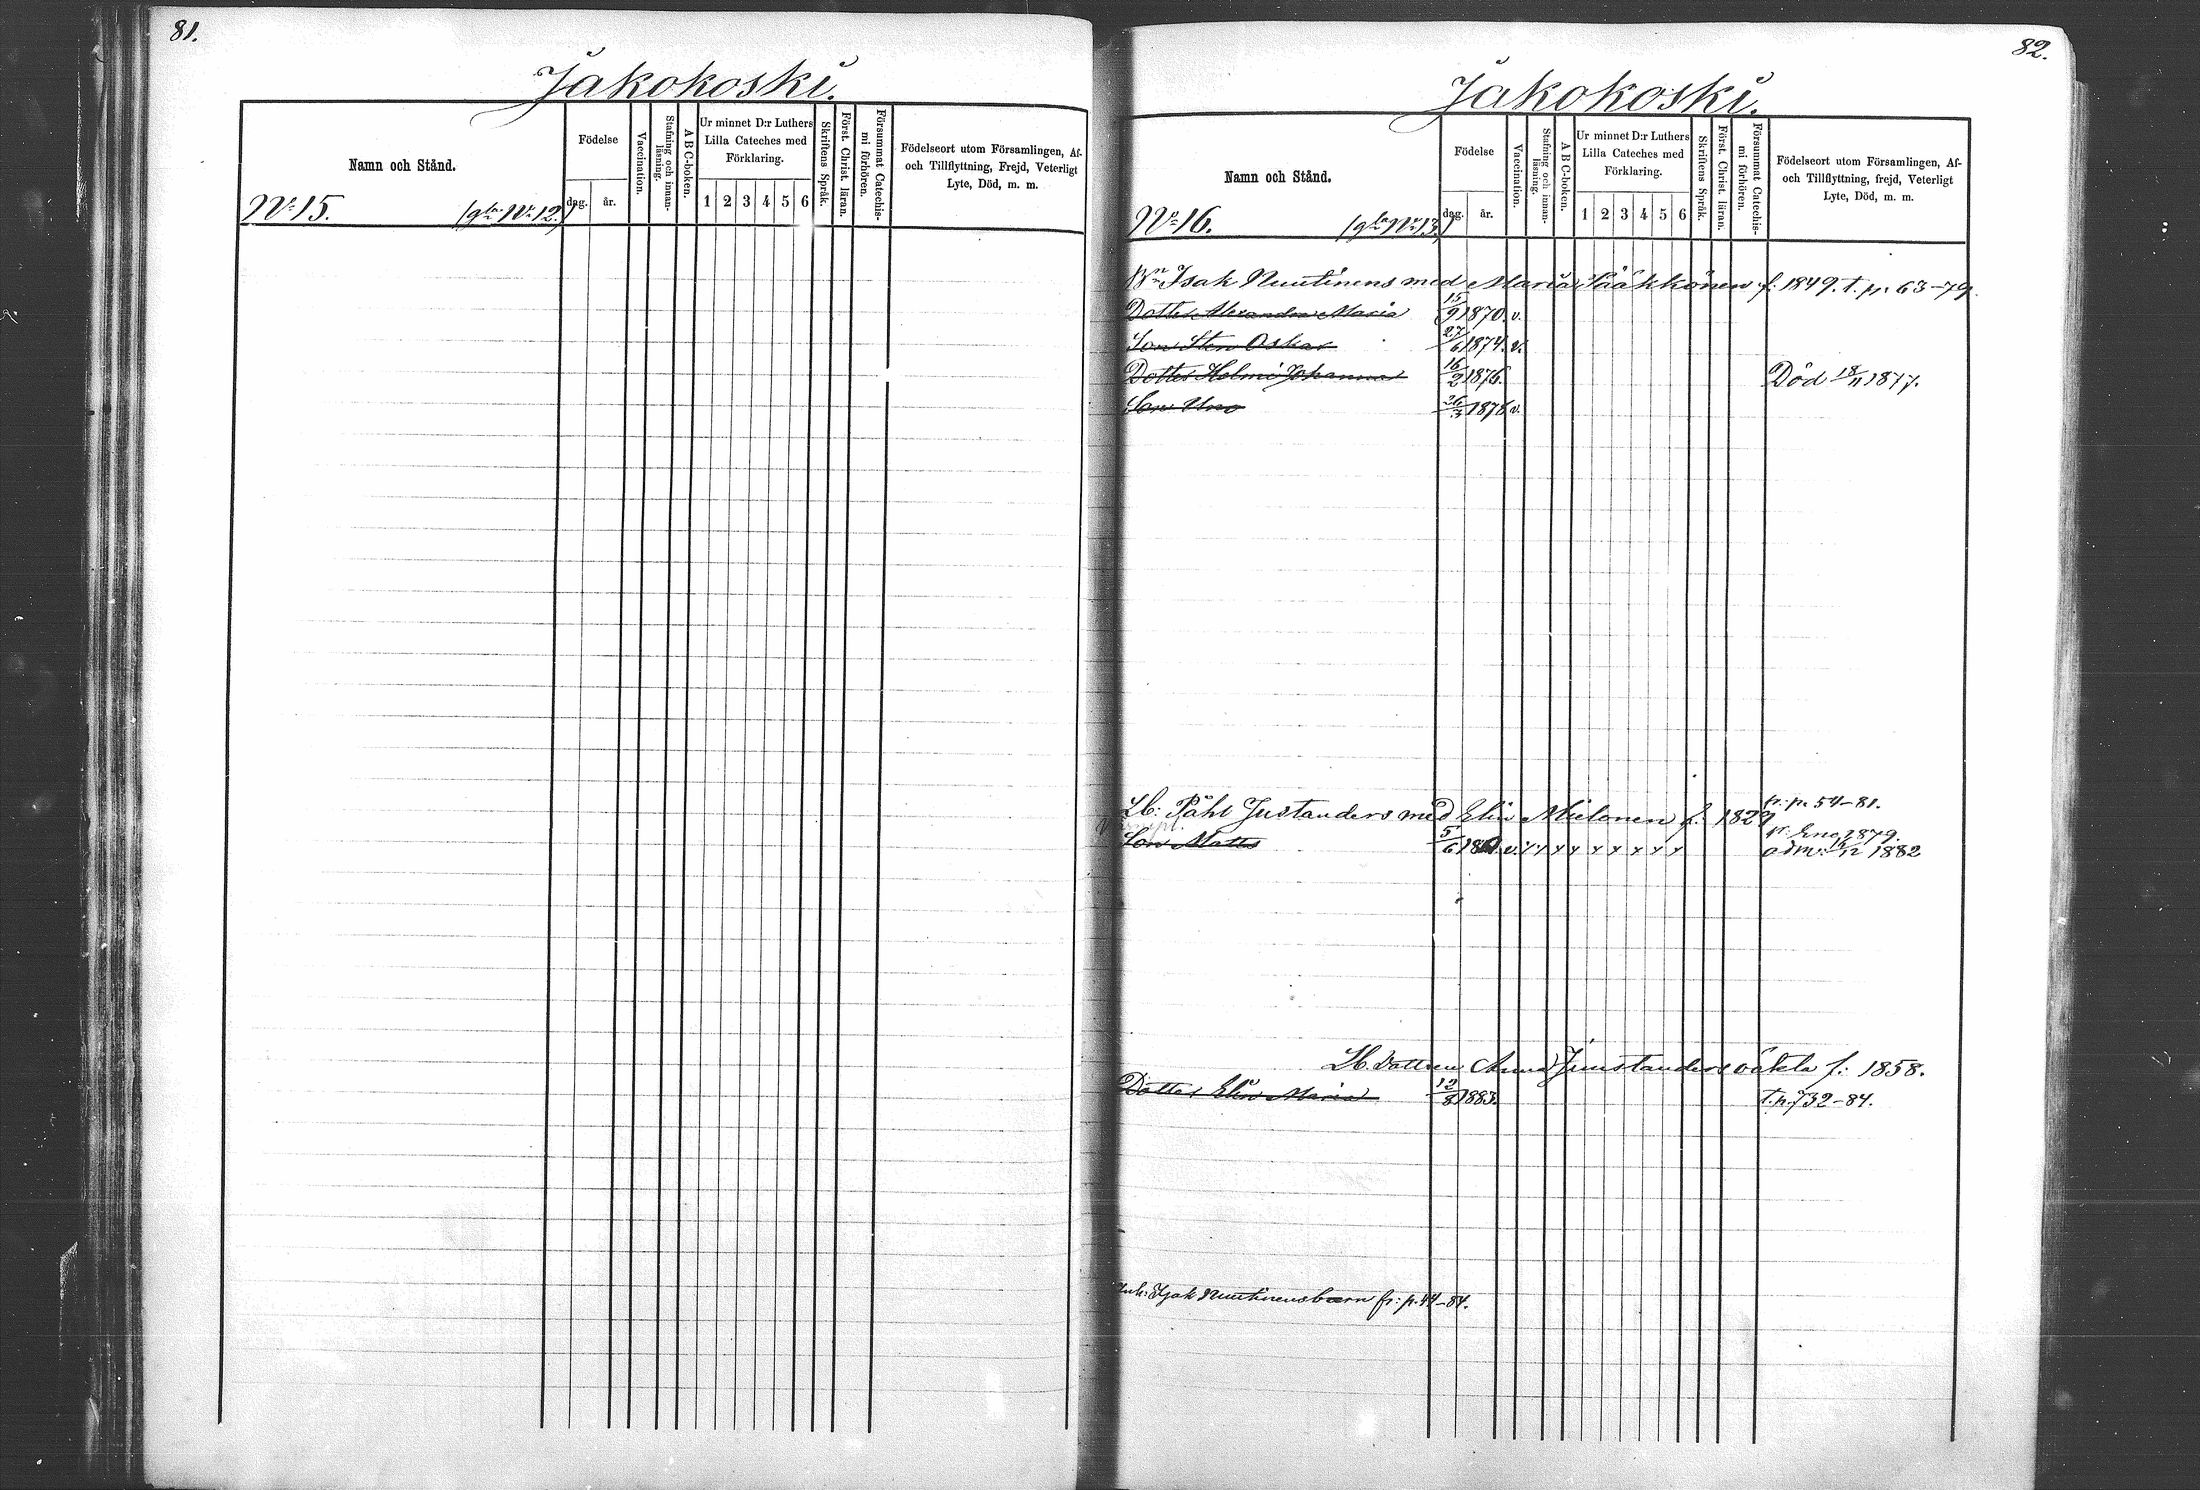 81.
Jakokoski.
Namn och Stånd.
Födelse
dag. år.
Vaccination.
Stafning och innanläsning.
A B C-boken.
Ur minnet D:r Luthers
Lilla Cateches med
Förklaring.
1 2 3 4 5 6
Skriftens Språk.
Först. Christ. läran.
Försummat Catechismi förhören.
Födelseort utom Församlingen, Af-
och Tillflyttning, Frejd, Veterligt
Lyte, Död, m. m.
No 15. (gla No 12.)
82.
Jakokoski.
Namn och Stånd.
Födelse
dag. år.
Vaccination.
Stafning och innanläsning.
A B C-boken.
Ur minnet D:r Luthers
Lilla Cateches med
Förklaring.
1 2 3 4 5 6
Skriftens Språk.
Först. Christ. läran.
Försummat Catechismi förhören.
Födelseort utom Församlingen, Af-
och Tillflyttning, frejd, Veterligt
Lyte, Död, m. m.
No 16. (gla No 13.)
Bn Isak Nuutinens med Maria Pääkkönen f. 1849. t. p. 63-79.
Dotter Alexandra Maria 15/9 1870. v.
Son Sten Oskar 27/6 1874. v.
Dotter Helmi Johanna 16/2 1876. Död 18/11 1877.
Son Uno 26/3 1878 v.
fr. p. 54-81.
Lb: Påhl Justanders med Elin Mielonen f. 1829
fr. Eno 1879.
Son Matts 5/6 v. x x x x x x x x x adm. 1882
Lb. Dottren Anna Juustanders oäkta f: 1858.
Dotter Elin Maria 12/8 1883. t. p. 732-84.
Isak Nuutinens barn fr: p. 44-84.